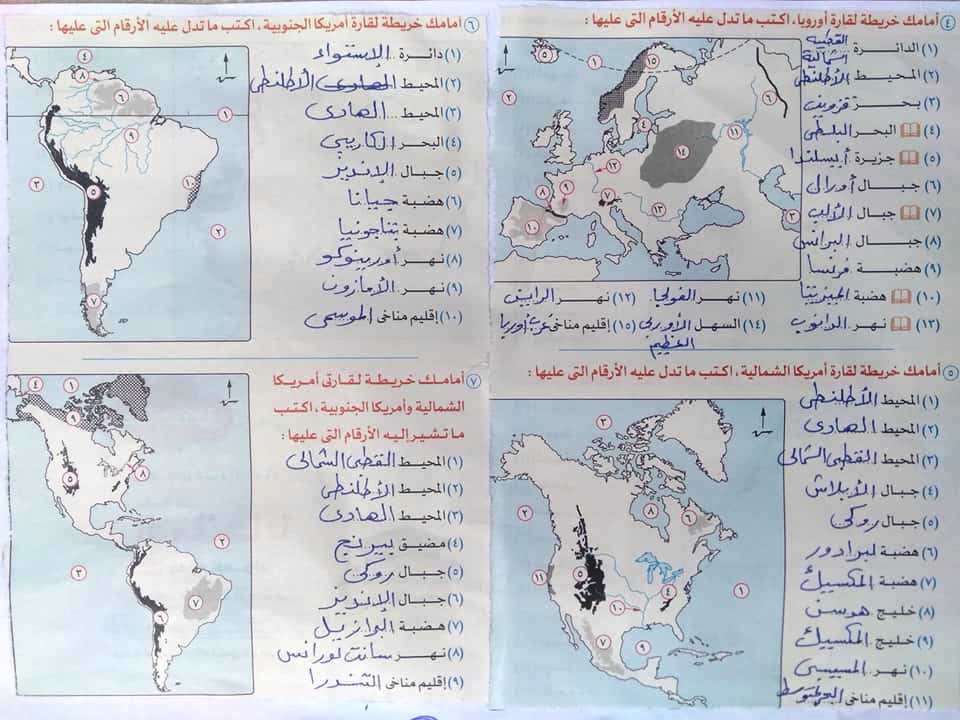 ٤ أمامك خريطة لقارة أوروبا، اكتب ما تدل عليه الأرقام التى عليها :
(١) الدائرة القطبية الشمالية
(٢) المحيط الأطلنطى
(٣) بحر قزوين
(٤) البحر البلطى
(٥) جزيرة أيسلندا
(٦) جبال أورال
(٧) جبال الألب
(٨) جبال البرانس
(٩) هضبة فرنسا
(١٠) هضبة الميزيتا
(١١) نهر الفولجا (١٢) نهر الراين
(١٣) نهر الدانوب
(١٤) السهل الأوربى العظيم (١٥) إقليم مناخى غرب أوربا
٥ أمامك خريطة لقارة أمريكا الشمالية، اكتب ما تدل عليه الأرقام التى عليها :
(١) المحيط الأطلنطى
(٢) المحيط الهادى
(٣) المحيط القطبى الشمالى
(٤) جبال الأبلاش
(٥) جبال روكى
(٦) هضبة لبرادور
(٧) هضبة المكسيك
(٨) خليج هوسن
(٩) خليج المكسيك
(١٠) نهر المسيسبى
(١١) إقليم مناخى البحر المتوسط
٦ أمامك خريطة لقارة أمريكا الجنوبية، اكتب ما تدل عليه الأرقام التى عليها :
(١) دائرة الاستواء
(٢) المحيط الهادى الأطلنطى
(٣) المحيط الهادى
(٤) البحر الكاريبى
(٥) جبال الإنديز
(٦) هضبة جيانا
(٧) هضبة بتاجونيا
(٨) نهر أورينوكو
(٩) نهر الأمازون
(١٠) إقليم مناخى الموسمى
٧ أمامك خريطة لقارتى أمريكا
الشمالية وأمريكا الجنوبية، اكتب
ما تشير إليه الأرقام التى عليها :
(١) المحيط القطبى الشمالى
(٢) المحيط الأطلنطى
(٣) المحيط الهادى
(٤) مضيق بيرنج
(٥) جبال روكى
(٦) جبال الإنديز
(٧) هضبة البرازيل
(٨) نهر سانت لورانس
(٩) إقليم مناخى التندرا